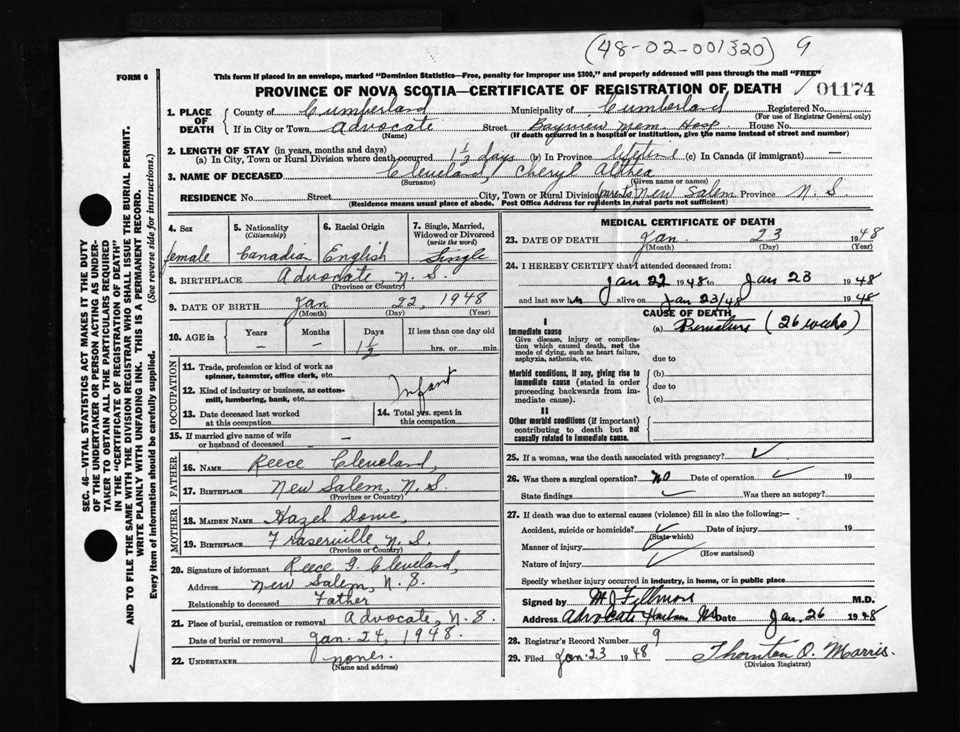 (48-02-001320) 9
FORM 6
This form if placed in an envelope, marked "Dominion Statistics—Free, penalty for improper use $300," and properly addressed will pass through the mail "FREE"
PROVINCE OF NOVA SCOTIA—CERTIFICATE OF REGISTRATION OF DEATH
01174
1. PLACE OF DEATH County of Cumberland Municipality of Cumberland Registered No.
(For use of Registrar General only)
If in City or Town Advocate Street Bayview Mem. Hosp House No.
(Name) (If death occurred in a hospital or institution, give the name instead of street and number)
2. LENGTH OF STAY (in years, months and days)
(a) In City, Town or Rural Division where death occurred 1½ days (b) In Province Lifetime (c) In Canada (if immigrant) —
3. NAME OF DECEASED Cleveland, Cheryl Althea
(Surname) (Given name or names)
RESIDENCE No. Street City, Town or Rural Division (parents) New Salem Province N. S.
(Residence means usual place of abode. Post Office Address for residents in rural parts not sufficient)
4. Sex
female
5. Nationality
(Citizenship)
Canadian
6. Racial Origin
English
7. Single, Married, Widowed or Divorced
(write the word)
Single
8. BIRTHPLACE Advocate, N. S.
(Province or Country)
9. DATE OF BIRTH Jan 22, 1948
(Month) (Day) (Year)
10. AGE in Years Months Days If less than one day old
— — 1½ hrs. or min.
OCCUPATION
11. Trade, profession or kind of work as spinner, teamster, office clerk, etc.
12. Kind of industry or business, as cotton-mill, lumbering, bank, etc.
Infant
13. Date deceased last worked at this occupation
14. Total yrs. spent in this occupation
15. If married give name of wife or husband of deceased —
FATHER
16. NAME Reece Cleveland,
17. BIRTHPLACE New Salem, N. S.
(Province or Country)
MOTHER
18. MAIDEN NAME Hazel Dowe,
19. BIRTHPLACE Fraserville N. S.
(Province or Country)
20. Signature of informant Reece G. Cleveland,
Address New Salem, N. S.
Relationship to deceased Father
21. Place of burial, cremation or removal Advocate, N. S.
Date of burial or removal Jan. 24, 1948.
22. UNDERTAKER none.
(Name and address)
MEDICAL CERTIFICATE OF DEATH
23. DATE OF DEATH Jan. 23 1948
(Month) (Day) (Year)
24. I HEREBY CERTIFY that I attended deceased from:
Jan 22 1948 to Jan 23 1948
and last saw h alive on Jan 23/48 1948
CAUSE OF DEATH
I
Immediate cause
Give disease, injury or complication which caused death, not the mode of dying, such as heart failure, asphyxia, asthenia, etc.
(a) Premature (26 weeks)
due to
Morbid conditions, if any, giving rise to immediate cause (stated in order proceeding backwards from immediate cause).
(b)
due to
(c)
II
Other morbid conditions (if important) contributing to death but not causally related to immediate cause.
25. If a woman, was the death associated with pregnancy? ✓
26. Was there a surgical operation? No Date of operation ✓ 19
State findings ✓ Was there an autopsy?
27. If death was due to external causes (violence) fill in also the following:—
Accident, suicide or homicide? ✓ Date of injury 19
(State which)
Manner of injury ✓
(How sustained)
Nature of injury ✓
Specify whether injury occurred in industry, in home, or in public place
Signed by M J Fillmore M.D.
Address Advocate Harbour NS Date Jan. 26 1948
28. Registrar's Record Number 9
29. Filed Jan. 23 1948 Thornton O. Morris.
(Division Registrar)
SEC. 46—VITAL STATISTICS ACT MAKES IT THE DUTY
OF THE UNDERTAKER OR PERSON ACTING AS UNDER-
TAKER TO OBTAIN ALL THE PARTICULARS REQUIRED
IN THE "CERTIFICATE OF REGISTRATION OF DEATH"
AND TO FILE THE SAME WITH THE DIVISION REGISTRAR WHO SHALL ISSUE THE BURIAL PERMIT.
WRITE PLAINLY WITH UNFADING INK. THIS IS A PERMANENT RECORD.
Every item of information should be carefully supplied. (See reverse side for instructions.)